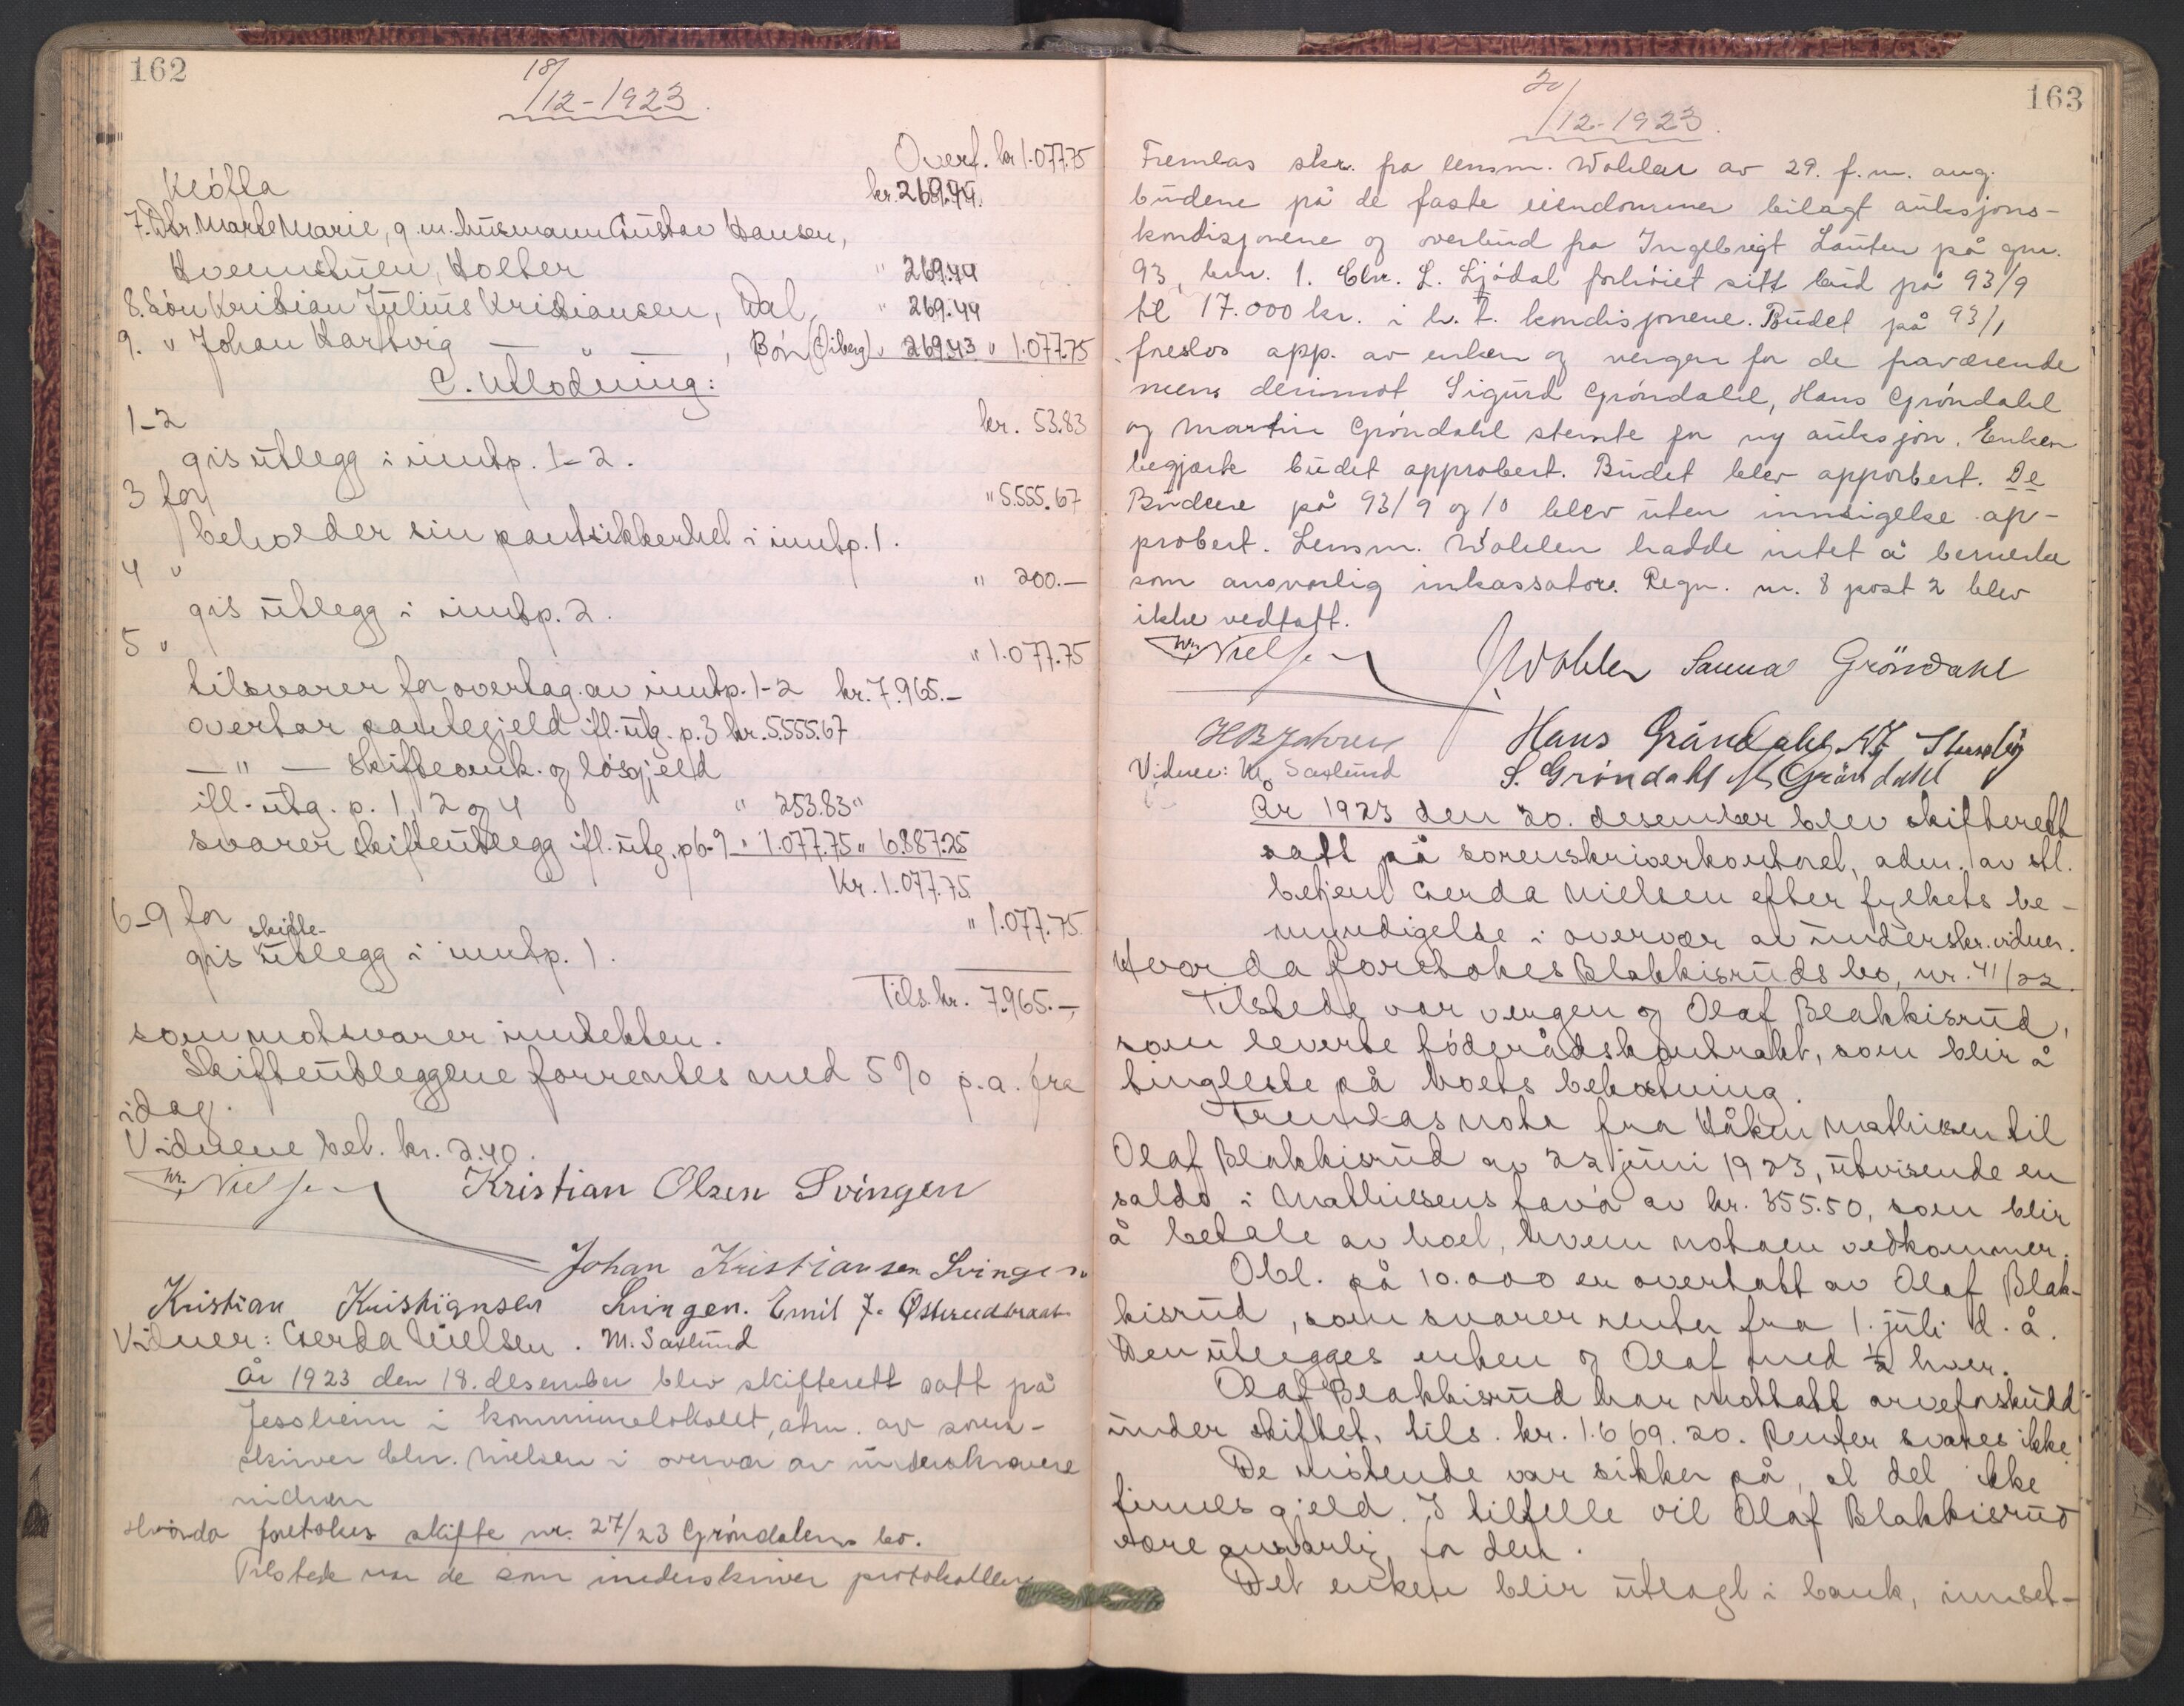 162
18/12-1923.
Overf. kr 1.077.75
Kløfta kr. 269.44.
7. Dtr. Marte Marie, g.m. husmann Gustav Hansen,
Kvernstuen, Holter " 269.44
8. Søn Kristian Julius Kristiansen, Dal, " 269.44
9. " Johan Hartvig — " — , Bøn (Øiberg) " 269.43 " 1.077.75
C. Utlodning:
1-2 kr. 53.83
gis utlegg i inntp. 1-2.
3 for " 5.555.67
beholder sin pantsikkerhet i inntp. 1.
4 " " 200.—
gis utlegg i inntp. 2.
5 " " 1.077.75
tilsvarer for overtag. av inntp. 1-2 kr. 7.965.—
overtar pantegjeld ifl. utg. p. 3 kr. 5.555.67
— " — skifteomk. og løsgjeld
ifl. utg. p. 1, 2 og 4 " 253.83 "
svarer skifteutlegg ifl. utg. p 6-9 " 1.077.75 " 6.887.25
Kr. 1.077.75
6-9 for " 1.077.75
gis skifte-utlegg i inntp. 1.
Tils. kr. 7.965.—,
som motsvarer inntekten.
Skifteutleggene forrentes med 5% p.a. fra
idag.
Vidnene bet. kr. 2.40.
Chr. Nielsen Kristian Olsen Svingen
Johan Kristiansen Svingen
Kristian Kristiansen Svingen. Emil J. Østerudbraat
Vidner: Gerda Nielsen. M. Saxlund
År 1923 den 18. desember blev skifterett satt på
Jessheim i kommunelokalet, adm. av soren-
skriver Chr. Nielsen i overvær av underskrevne
vidner
Hvorda foretokes skifte nr. 27/23 Grøndalens bo.
Tilstede var de som underskriver protokollen
163
20/12-1923.
Fremlas skr. fra lensm. Wohlen av 29. f.m. ang.
budene på de faste eiendommer bilagt auksjons-
kondisjonene og overbud fra Ingebrigt Lauten på gnr.
93, bnr. 1. Chr. L. Ljødal forhøiet sitt bud på 93/9
til 17.000 kr. i h.t. kondisjonene. Budet på 93/1
foreslos app. av enken og vergen for de fraværende
mens derimot Sigurd Grøndahl, Hans Grøndahl
og Martin Grøndahl stemte for ny auksjon. Enken
begjærte budet approbert. Budet blev apporbert. De
Budene på 93/9 og 10 blev uten innsigelse ap-
probert. Lensm. Wohlen hadde intet å bemerke
som ansvarlig inkassator. Regn. nr. 8 post 2 blev
ikke vedtatt.
Chr. Nielsen J. Wohlen Sanna Gröndahl
H B Jahren Hans Gröndahl
Vidner: M. Saxlund S. Grøndahl M. Gröndahl
År 1923 den 20. desember blev skifterett
satt på sorenskriverkontoret, adm. av stl.
betjent Gerda Nielsen efter fylkets be-
myndigelse i overvær av underskr. vidner.
Hvorda foretokes Blakkisruds bo, nr. 41/22.
Tilstede var vergen og Olaf Blakkisrud,
som leverte föderådskontrakt, som blir å
tingleste på boets bekostning.
Fremlas nota fra Håkon Mathisen til
Olaf Blakkisrud av 22 juni 1923, utvisende en
saldo i Mathisens favør av kr. 355.50, som blir
å betale av boet, hvem notaen vedkommer.
Obl. på 10.000 er overtatt av Olaf Blak-
kisrud, som svarer renter fra 1. juli d.å.
Den utlegges enken og Olaf med ½ hver.
Olaf Blakkisrud har mottatt arveforskudd
under skiftet, tils. kr. 1.669.20. Renter svares ikke.
De møtende var sikker på, at det ikke
finnes gjeld. I tilfelle vil Olaf Blakkisrud
være ansvarlig for den.
Det enken blir utlagt i bank, innset-